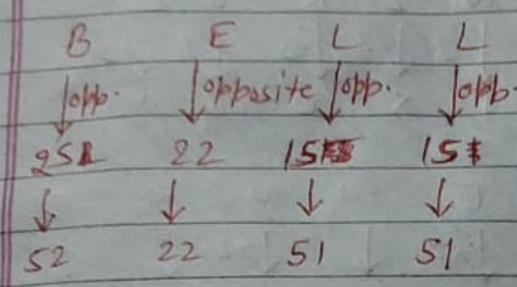 B E L L
opp. opposite opp. opp.
25 22 15 15
52 22 51 51